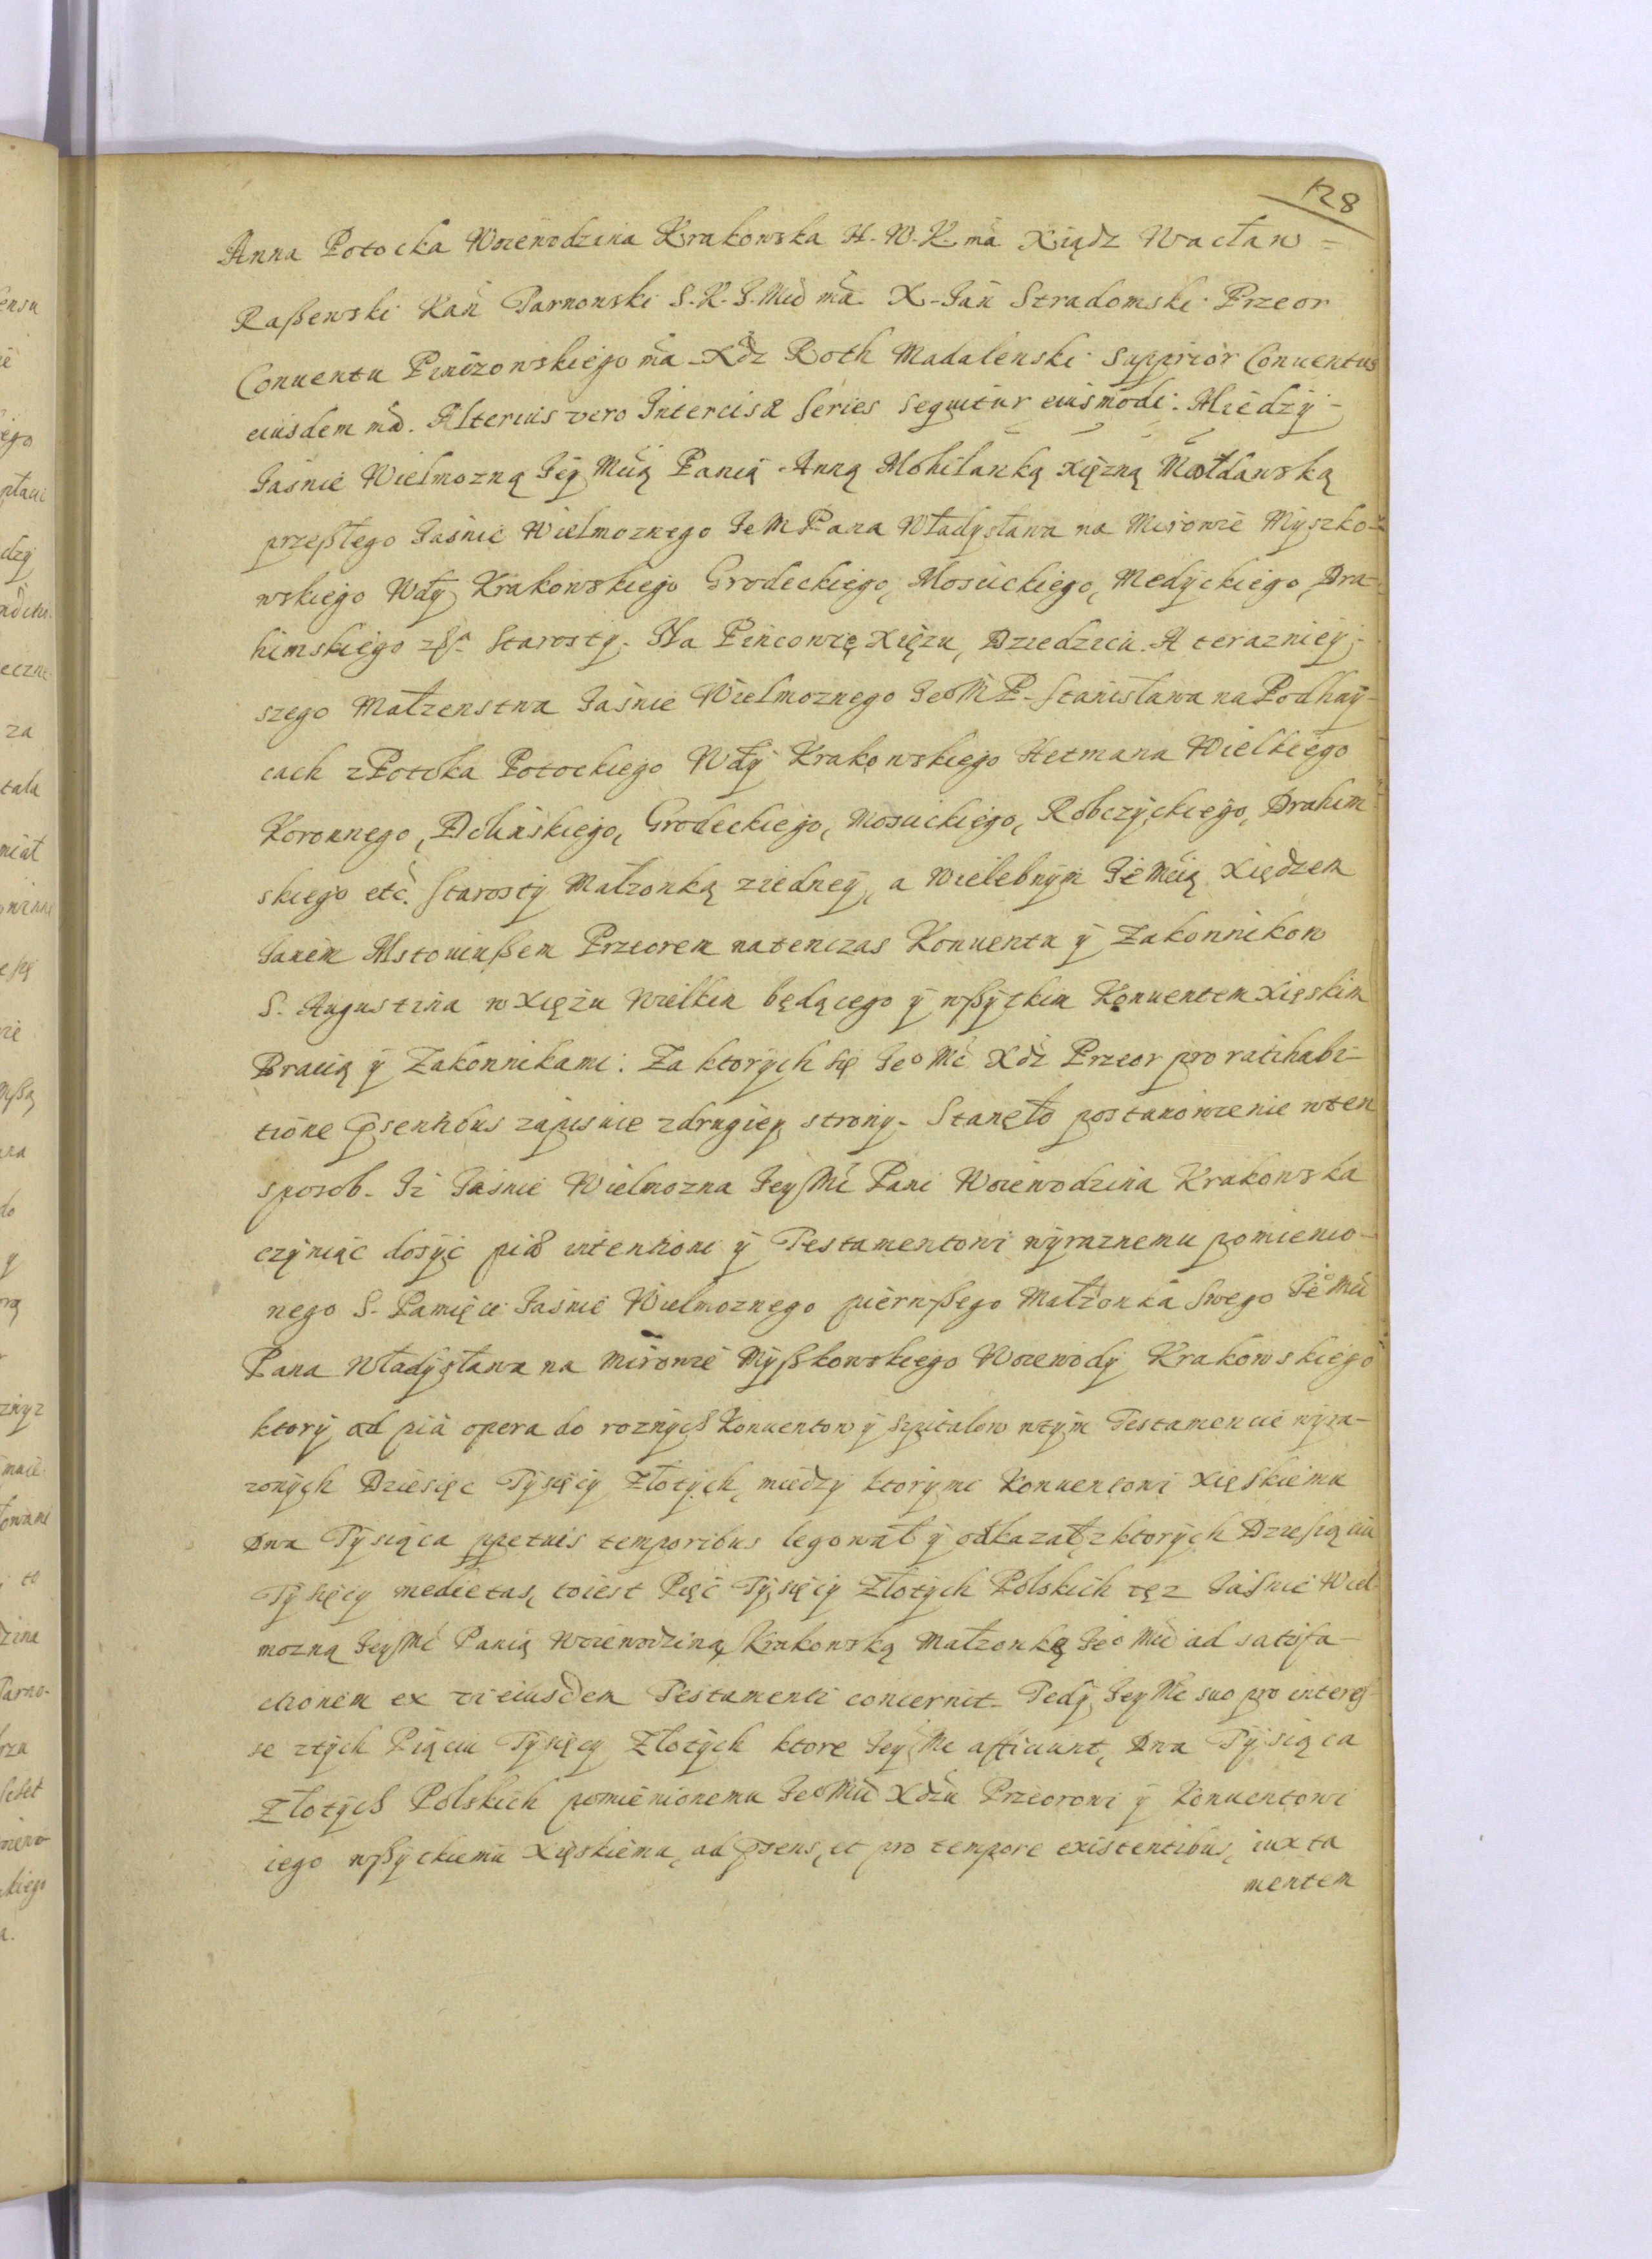 128
Anna Potocka Woiewodzina Krakowska H. W. K. mã Xiądz Wacław =
Raßewski Kañ Tarnowski S. K. J. Mči mã. X. Jan Stradomski Przeor
Conuentu Pinczowskiego mã Xdz Roch Madalenski Supprior Conuentus
eiusdem mã. Alterius vero Intercisæ series sequitur eiusmodi. Między
Jaśnie Wielmozną Jey Mcią Panią Anną Mohilanką xięzną Mołdawską
przeßłego Jaśnie Wielmoznego Je M Pana Władysława na Mirowie Myszko-
wskiego Wdy Krakowskiego Grodeckiego, Mościckiego, Medyckiego, Dra-
himskiego Starosty. Na Pinczowie Xięzu, Dziedzica. A terazniey-
szego Małzenstwa Jaśnie Wielmoznego Jeo M P. Stanisława na Podhay-
cach z Potoka Potockiego Wdy Krakowskiego Hetmana Wielkiego
Koronnego, Dolinskiego, Grodeckiego, Mościckiego, Robczyckiego, Drahim-
skiego etc. Starosty Małzonką ziedney, a Wielebnym Je Mcią Xiędzem
Janem Mstowiußem Przeorem natenczas Konuentu y Zakonnikow
S. Augustina w Xięzu Wielkim będącego y wßytkim Konuentem Xięskim
Bracią y Zakonnikami. Za ktorych się Jeo Mć Xdz Przeor pro ratihabi-
tione psentibus zapisuie zdrugiey strony. Stanęło postanowienie wten
sposob. Iż Jaśnie Wielmozna Jey Mć Pani Woiewodzina Krakowska
czyniąc dosyć piæ intentioni y Testamentowi wyraznemu pomienio-
nego S. Pamięci Jaśnie Wielmoznego pierwßego Małżonka Swego Je Mci
Pana Władysława na Mirowie Myßkowskiego Woiewody Krakowskiego
ktory ad pia opera do roznych Konuentow y Szpitalow wtym Testamencie wyra-
zonych Dziesięc Tysięcy Złotych, miedzy ktorymi Konuentowi Xięskiemu
Dwa Tysiąca ppetuis temporibus legował y odkazał, z ktorych Dziesiąciu
Tysięcy medietas, toiest Pięć Tysięcy Złotych Polskich tęz Jaśnie Wiel-
mozną Jey Mć Panią Woiewodziną Krakowską Małzonkę Jeo Mci ad satisfa-
ctionem ex vi eiusdem Testamenti concernit. Tedy Jey Mć suo pro interes-
se ztych Piąciu Tysięcy Złotych ktore Jey Mć afficiunt, Dwa Tysiąca
Złotych Polskich pomienionemu Jeo Mci Xdzu Przeorowi y Konuentowi
iego wßyckiemu Xięskiemu, ad psens, et pro tempore existentibus, iuxta
mentem